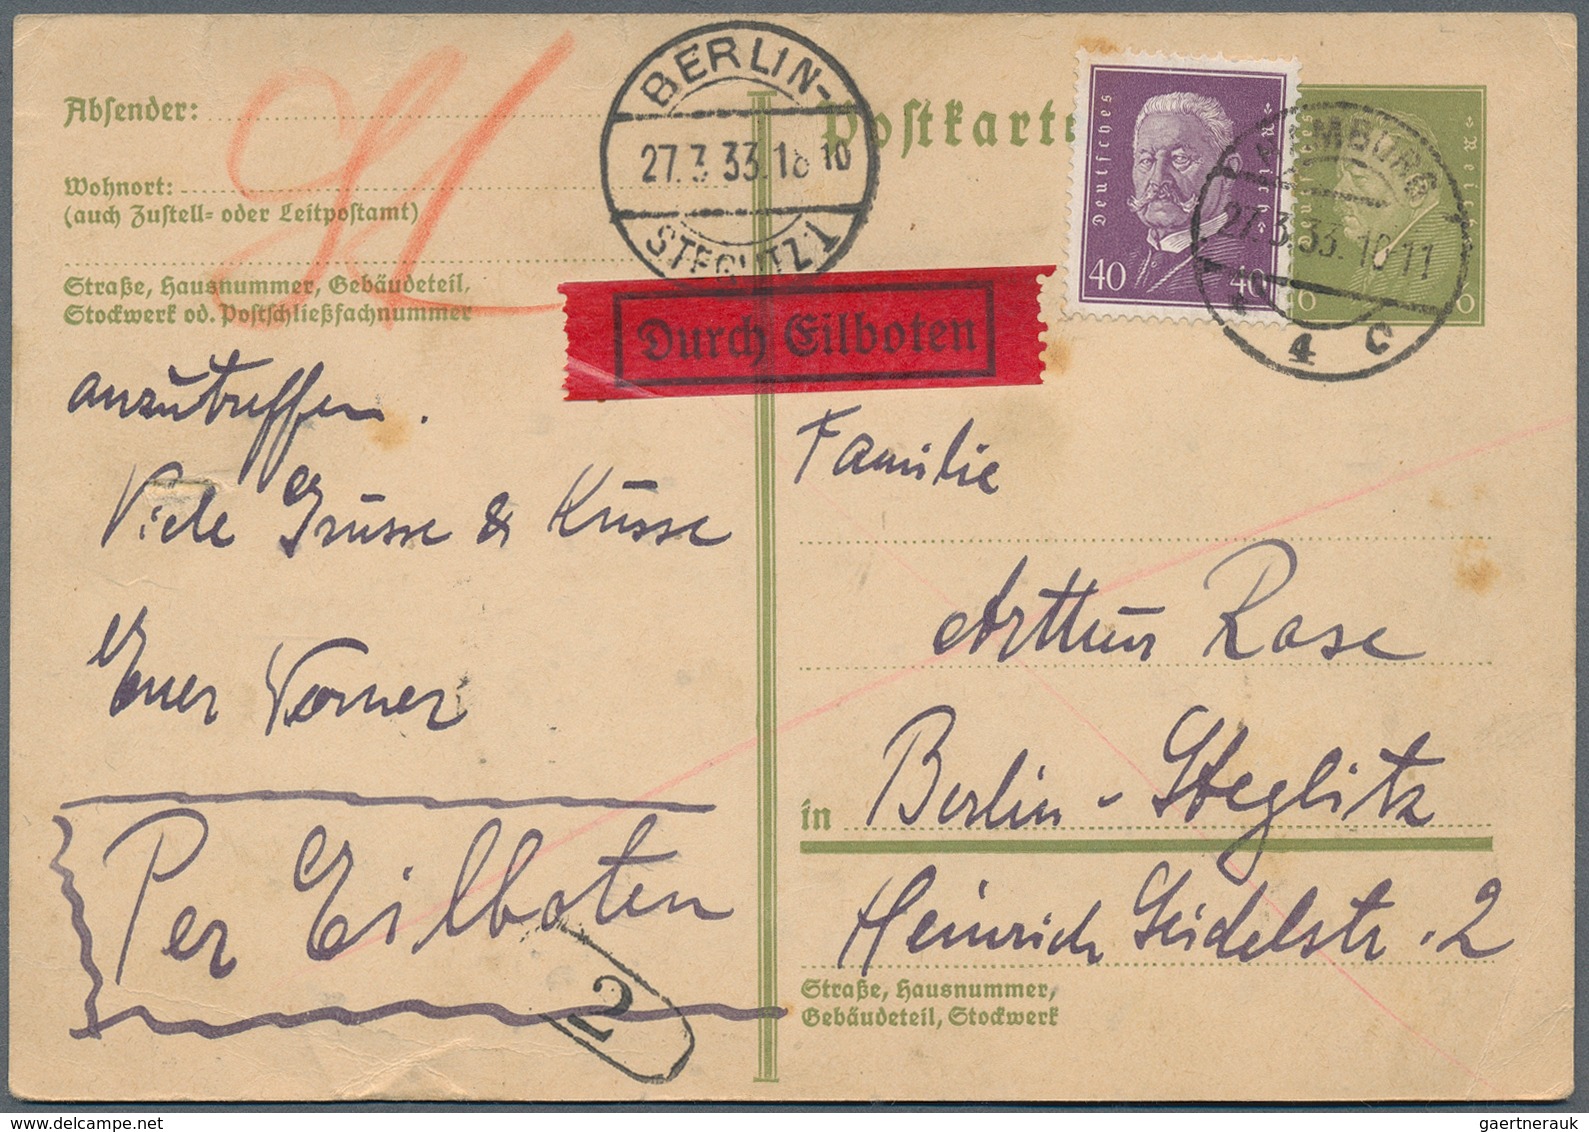 Absender:
Wohnort:
(auch Zustell- oder Leitpostamt)
Straße, Hausnummer, Gebäudeteil,
Stockwerk od. Postschließfachnummer
anzutreffen.
Viele Grüsse & Küsse
Euer Werner
Per Eilboten
2
BERLIN-
27.3.33.18 10
STEGLITZ 1
Durch Eilboten
Postkarte
Deutsches Reich
40 40
HAMBURG
27.3.33.10 11
* 4 C
Familie
Arthur Rase
in Berlin-Steglitz
Heinrich Seidelstr. 2
Straße, Hausnummer,
Gebäudeteil, Stockwerk
gaertnerauk